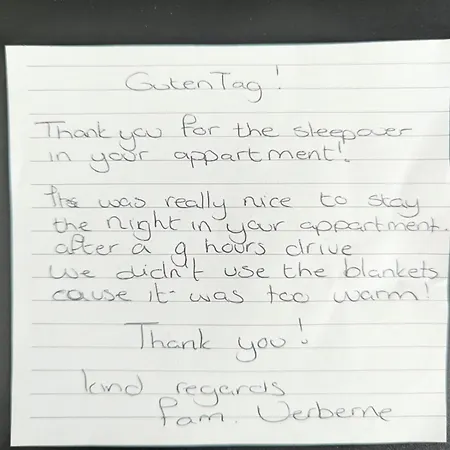 Guten Tag!
Thank you for the sleepover
in your appartment!
It was really nice to stay
the night in your appartment.
after a 9 hours drive
we didn't use the blankets
cause it was too warm!
Thank you!
kind regards
fam. Verberne